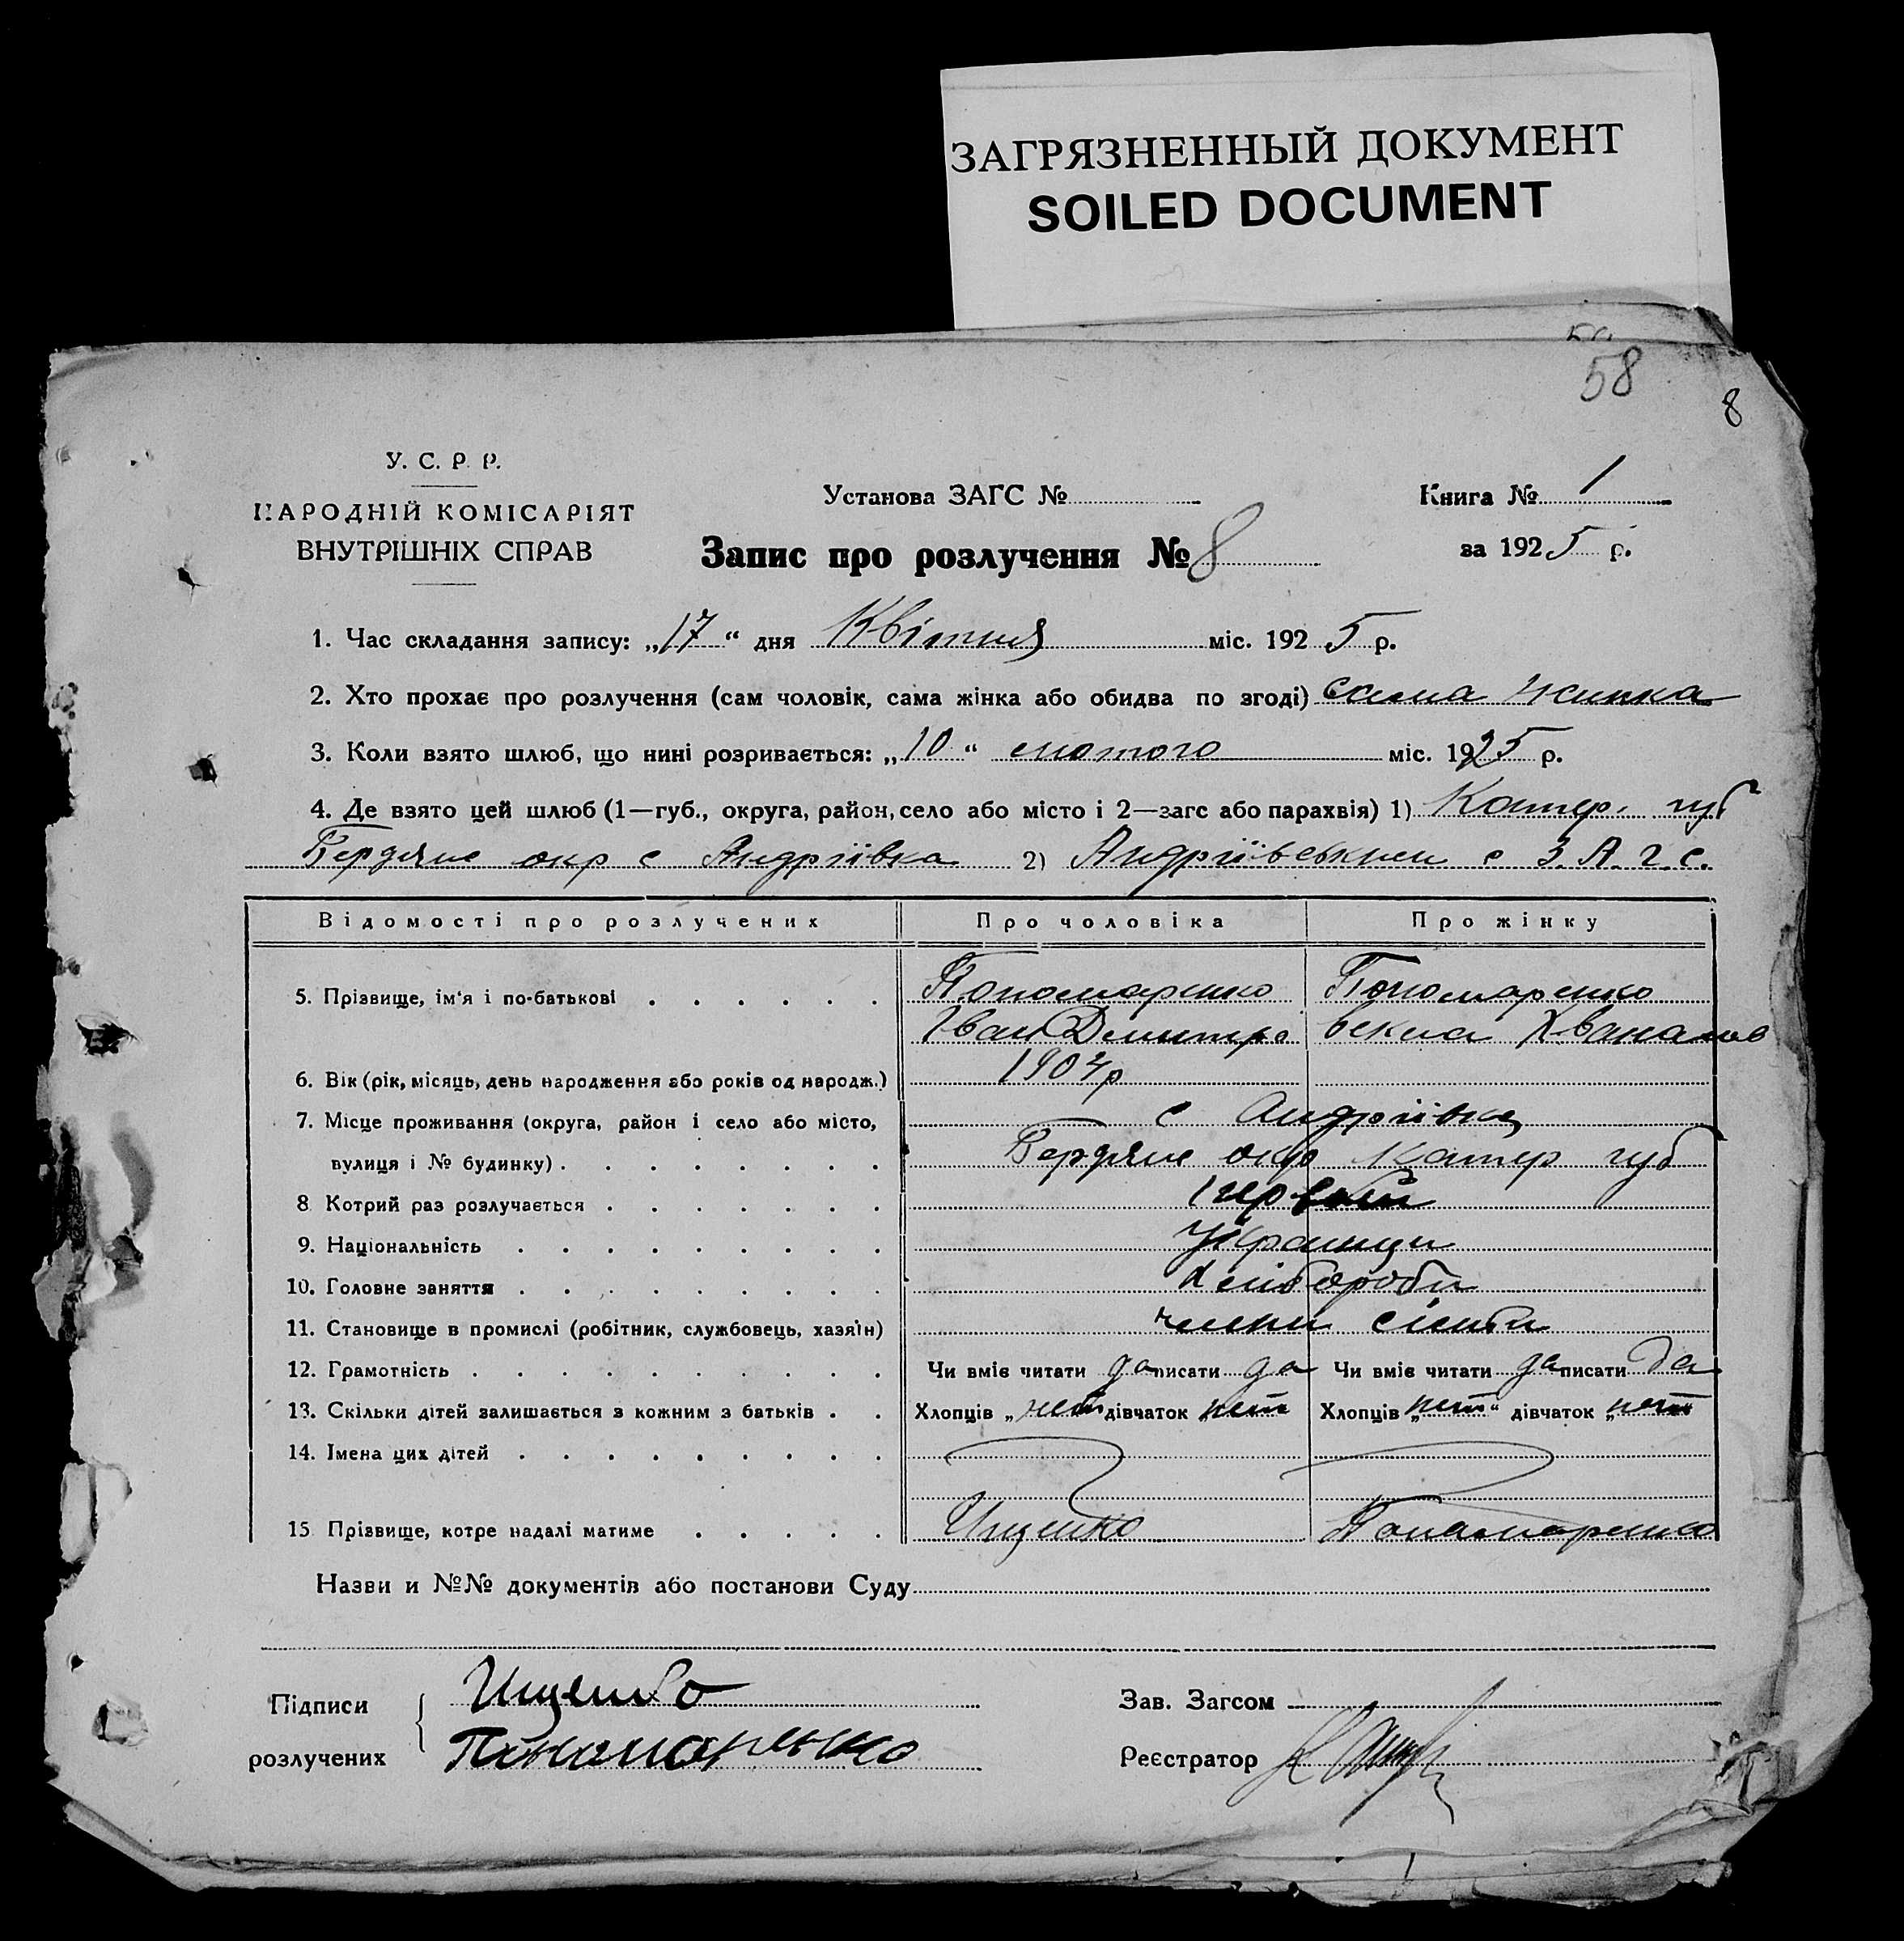 ЗАГРЯЗНЕННЫЙ ДОКУМЕНТ
SOILED DOCUMENT
58
8
У. С. Р. Р.
НАРОДНІЙ КОМІСАРІЯТ
ВНУТРІШНІХ СПРАВ
Установа ЗАГС №
Книга № 1
за 1925 р.
Запис про розлучення № 8
1. Час складання запису: „17“ дня Квітня міс. 1925 р.
2. Хто прохає про розлучення (сам чоловік, сама жінка або обидва по згоді) сама жинка
3. Коли взято шлюб, що нині розривається: „10“ лютого міс. 1925 р.
4. Де взято цей шлюб (1—губ., округа, район, село або місто і 2—загс або парахвія) 1) Катер. губ
Бердянс окр с Андріївка 2) Андріївським с З.А.Г.С.
Відомості про розлучених Про чоловіка Про жінку
5. Прізвище, ім'я і по-батькові Пономаренко Пономаренко
Іван Дмитро векла
6. Вік (рік, місяць, день народження або років од народж.) 1904р
7. Місце проживання (округа, район і село або місто, с Андріївка
вулиця і № будинку) Бердянс окр Катер губ
8 Котрий раз розлучається первый
9. Національність Украинци
10. Головне заняття хлібороби
11. Становище в промислі (робітник, службовець, хазяїн) члени сімьи
12. Грамотність Чи вміє читати да писати да Чи вміє читати да писати да
13. Скільки дітей залишається з кожним з батьків Хлопців „нет дівчаток „нет Хлопців „нет“ дівчаток „нет
14. Імена цих дітей
15 Прізвище, котре надалі матиме Ищенко Пономаренко
Назви и №№ документів або постанови Суду
Підписи Ищенко Зав. Загсом
розлучених Пономаренко Реєстратор